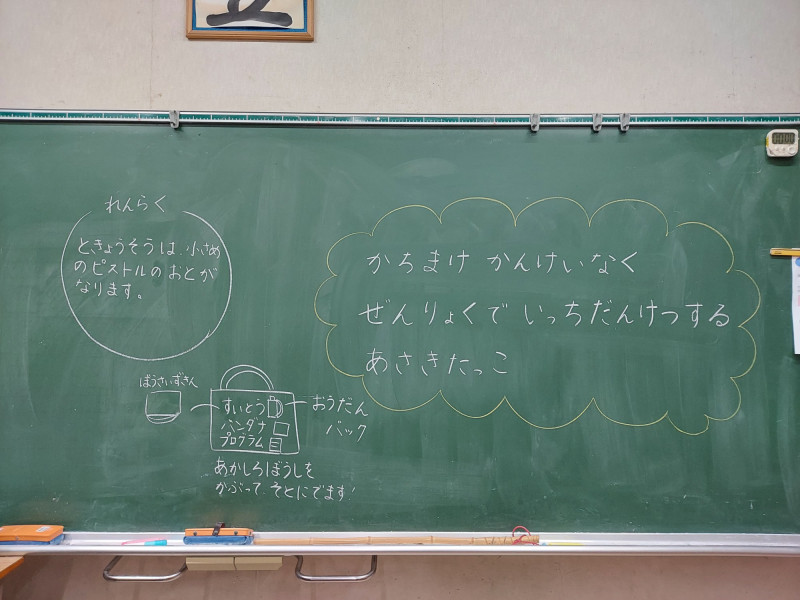 れんらく
ときょうそうは、小さめ
のピストルのおとが
なります。
かちまけ かんけいなく
ぜんりょくで いっちだんけつする
あさきたっこ
ぼうさいずきん
すいとう
バンダナ
プログラム
おうだん
バック
あかしろぼうしを
かぶって、そとにでます!